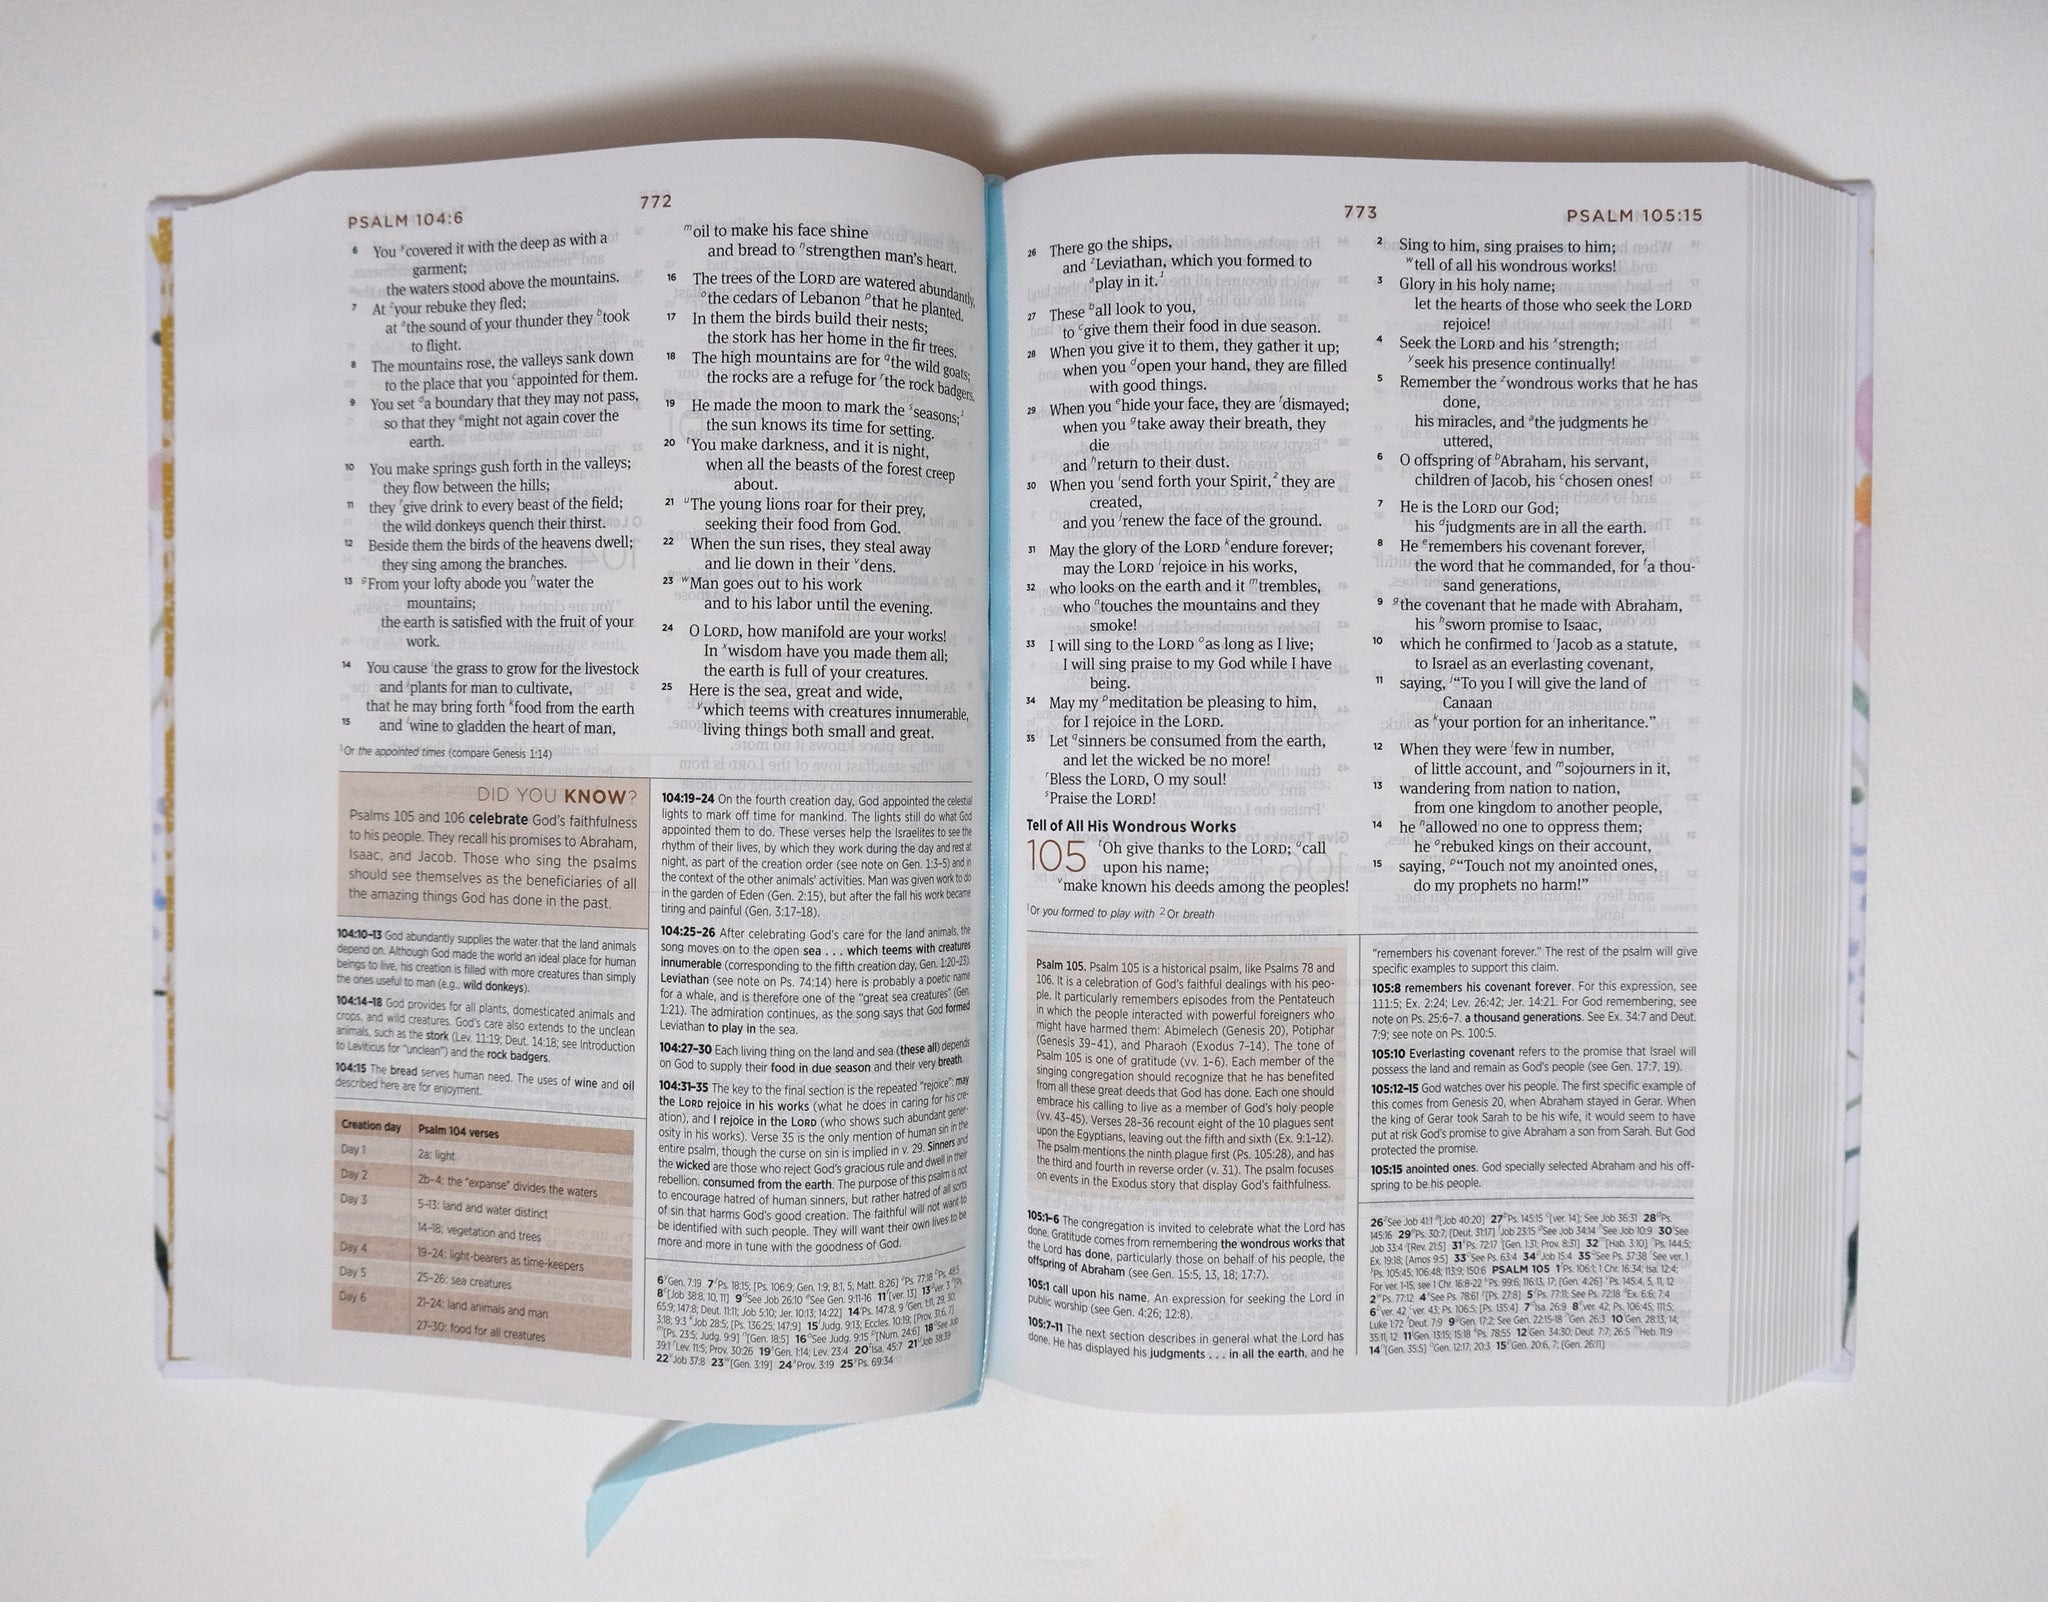 PSALM 104:6
772
6 You xcovered it with the deep as with a
garment;
the waters stood above the mountains.
7 At your rebuke they fled;
at athe sound of your thunder they btook
to flight.
8 The mountains rose, the valleys sank down
to the place that you cappointed for them.
9 You set da boundary that they may not pass,
so that they emight not again cover the
earth.
10 You make springs gush forth in the valleys;
they flow between the hills;
11 they fgive drink to every beast of the field;
the wild donkeys quench their thirst.
12 Beside them the birds of the heavens dwell;
they sing among the branches.
13 gFrom your lofty abode you hwater the
mountains;
the earth is satisfied with the fruit of your
work.
14 You cause ithe grass to grow for the livestock
and jplants for man to cultivate,
that he may bring forth kfood from the earth
15 and lwine to gladden the heart of man,
moil to make his face shine
and bread to nstrengthen man's heart.
16 The trees of the LORD are watered abundantly,
othe cedars of Lebanon pthat he planted.
17 In them the birds build their nests;
the stork has her home in the fir trees.
18 The high mountains are for qthe wild goats;
the rocks are a refuge for rthe rock badgers.
19 He made the moon to mark the sseasons;1
the sun knows its time for setting.
20 tYou make darkness, and it is night,
when all the beasts of the forest creep
about.
21 uThe young lions roar for their prey,
seeking their food from God.
22 When the sun rises, they steal away
and lie down in their vdens.
23 wMan goes out to his work
and to his labor until the evening.
24 O LORD, how manifold are your works!
In xwisdom have you made them all;
the earth is full of your creatures.
25 Here is the sea, great and wide,
ywhich teems with creatures innumerable,
living things both small and great.
1Or the appointed times (compare Genesis 1:14)
DID YOU KNOW?
Psalms 105 and 106 celebrate God's faithfulness
to his people. They recall his promises to Abraham,
Isaac, and Jacob. Those who sing the psalms
should see themselves as the beneficiaries of all
the amazing things God has done in the past.
104:10–13 God abundantly supplies the water that the land animals
depend on. Although God made the world an ideal place for human
beings to live, his creation is filled with more creatures than simply
the ones useful to man (e.g., wild donkeys).
104:14–18 God provides for all plants, domesticated animals and
crops, and wild creatures. God's care also extends to the unclean
animals, such as the stork (Lev. 11:19; Deut. 14:18; see Introduction
to Leviticus for "unclean") and the rock badgers.
104:15 The bread serves human need. The uses of wine and oil
described here are for enjoyment.
Creation day Psalm 104 verses
Day 1 2a: light
Day 2 2b–4: the "expanse" divides the waters
Day 3 5–13: land and water distinct
14–18: vegetation and trees
Day 4 19–24: light-bearers as time-keepers
Day 5 25–26: sea creatures
Day 6 21–24: land animals and man
27–30: food for all creatures
104:19–24 On the fourth creation day, God appointed the celestial
lights to mark off time for mankind. The lights still do what God
appointed them to do. These verses help the Israelites to see the
rhythm of their lives, by which they work during the day and rest at
night, as part of the creation order (see note on Gen. 1:3–5) and in
the context of the other animals' activities. Man was given work to do
in the garden of Eden (Gen. 2:15), but after the fall his work became
tiring and painful (Gen. 3:17–18).
104:25–26 After celebrating God's care for the land animals, the
song moves on to the open sea . . . which teems with creatures
innumerable (corresponding to the fifth creation day, Gen. 1:20–23).
Leviathan (see note on Ps. 74:14) here is probably a poetic name
for a whale, and is therefore one of the "great sea creatures" (Gen.
1:21). The admiration continues, as the song says that God formed
Leviathan to play in the sea.
104:27–30 Each living thing on the land and sea (these all) depends
on God to supply their food in due season and their very breath.
104:31–35 The key to the final section is the repeated "rejoice": may
the LORD rejoice in his works (what he does in caring for his cre-
ation), and I rejoice in the LORD (who shows such abundant gener-
osity in his works). Verse 35 is the only mention of human sin in the
entire psalm, though the curse on sin is implied in v. 29. Sinners and
the wicked are those who reject God's gracious rule and dwell in their
rebellion. consumed from the earth. The purpose of this psalm is not
to encourage hatred of human sinners, but rather hatred of all sorts
of sin that harms God's good creation. The faithful will not want to
be identified with such people. They will want their own lives to be
more and more in tune with the goodness of God.
6 Gen. 7:19 7 Ps. 18:15; [Ps. 106:9; Gen. 1:9; 8:1, 5; Matt. 8:26] Ps. 77:18
8 [Job 38:8, 10, 11] 9 See Job 26:10 See Gen. 9:11-16 11 [ver. 13] 13 ver. 3
65:9; 147:8; Deut. 11:11; Job 5:10; Jer. 10:13; 14:22] 14 Ps. 147:8, 9 Gen. 1:11, 29, 30;
3:18; 9:3 Job 28:5; [Ps. 136:25; 147:9] 15 Judg. 9:13; Eccles. 10:19; [Prov. 31:6, 7]
[Ps. 23:5; Judg. 9:9] [Gen. 18:5] 16 See Judg. 9:15 [Num. 24:6] 18 See Job
39:1 Lev. 11:5; Prov. 30:26 19 Gen. 1:14; Lev. 23:4 20 Isa. 45:7 21 Job 38:39
22 Job 37:8 23 [Gen. 3:19] 24 Prov. 3:19 25 Ps. 69:34
773
PSALM 105:15
26 There go the ships,
and zLeviathan, which you formed to
aplay in it.1
27 These ball look to you,
to cgive them their food in due season.
28 When you give it to them, they gather it up;
when you dopen your hand, they are filled
with good things.
29 When you ehide your face, they are fdismayed;
when you gtake away their breath, they
die
and hreturn to their dust.
30 When you isend forth your Spirit,2 they are
created,
and you jrenew the face of the ground.
31 May the glory of the LORD kendure forever;
may the LORD lrejoice in his works,
32 who looks on the earth and it mtrembles,
who ntouches the mountains and they
smoke!
33 I will sing to the LORD oas long as I live;
I will sing praise to my God while I have
being.
34 May my pmeditation be pleasing to him,
for I rejoice in the LORD.
35 Let qsinners be consumed from the earth,
and let the wicked be no more!
rBless the LORD, O my soul!
sPraise the LORD!
Tell of All His Wondrous Works
105 tOh give thanks to the LORD; ucall
upon his name;
vmake known his deeds among the peoples!
1Or you formed to play with 2Or breath
2 Sing to him, sing praises to him;
wtell of all his wondrous works!
3 Glory in his holy name;
let the hearts of those who seek the LORD
rejoice!
4 Seek the LORD and his xstrength;
yseek his presence continually!
5 Remember the zwondrous works that he has
done,
his miracles, and athe judgments he
uttered,
6 O offspring of bAbraham, his servant,
children of Jacob, his cchosen ones!
7 He is the LORD our God;
his djudgments are in all the earth.
8 He eremembers his covenant forever,
the word that he commanded, for fa thou-
sand generations,
9 gthe covenant that he made with Abraham,
his hsworn promise to Isaac,
10 which he confirmed to iJacob as a statute,
to Israel as an everlasting covenant,
11 saying, j"To you I will give the land of
Canaan
as kyour portion for an inheritance."
12 When they were lfew in number,
of little account, and msojourners in it,
13 wandering from nation to nation,
from one kingdom to another people,
14 he nallowed no one to oppress them;
he orebuked kings on their account,
15 saying, p"Touch not my anointed ones,
do my prophets no harm!"
Psalm 105. Psalm 105 is a historical psalm, like Psalms 78 and
106. It is a celebration of God's faithful dealings with his peo-
ple. It particularly remembers episodes from the Pentateuch
in which the people interacted with powerful foreigners who
might have harmed them: Abimelech (Genesis 20), Potiphar
(Genesis 39–41), and Pharaoh (Exodus 7–14). The tone of
Psalm 105 is one of gratitude (vv. 1–6). Each member of the
singing congregation should recognize that he has benefited
from all these great deeds that God has done. Each one should
embrace his calling to live as a member of God's holy people
(vv. 43–45). Verses 28–36 recount eight of the 10 plagues sent
upon the Egyptians, leaving out the fifth and sixth (Ex. 9:1–12).
The psalm mentions the ninth plague first (Ps. 105:28), and has
the third and fourth in reverse order (v. 31). The psalm focuses
on events in the Exodus story that display God's faithfulness.
105:1–6 The congregation is invited to celebrate what the Lord has
done. Gratitude comes from remembering the wondrous works that
the Lord has done, particularly those on behalf of his people, the
offspring of Abraham (see Gen. 15:5, 13, 18; 17:7).
105:1 call upon his name. An expression for seeking the Lord in
public worship (see Gen. 4:26; 12:8).
105:7–11 The next section describes in general what the Lord has
done. He has displayed his judgments . . . in all the earth, and he
"remembers his covenant forever." The rest of the psalm will give
specific examples to support this claim.
105:8 remembers his covenant forever. For this expression, see
111:5; Ex. 2:24; Lev. 26:42; Jer. 14:21. For God remembering, see
note on Ps. 25:6–7. a thousand generations. See Ex. 34:7 and Deut.
7:9; see note on Ps. 100:5.
105:10 Everlasting covenant refers to the promise that Israel will
possess the land and remain as God's people (see Gen. 17:7, 19).
105:12–15 God watches over his people. The first specific example of
this comes from Genesis 20, when Abraham stayed in Gerar. When
the king of Gerar took Sarah to be his wife, it would seem to have
put at risk God's promise to give Abraham a son from Sarah. But God
protected the promise.
105:15 anointed ones. God specially selected Abraham and his off-
spring to be his people.
26 See Job 41:1 [Job 40:20] 27 Ps. 145:15 [ver. 14]; See Job 36:31 28 Ps.
145:16 29 Ps. 30:7; [Deut. 31:17] Job 23:15 See Job 34:14 See Job 10:9 30 See
Job 33:4 [Rev. 21:5] 31 Ps. 72:17 [Gen. 1:31; Prov. 8:31] 32 [Hab. 3:10] Ps. 144:5;
Ex. 19:18; [Amos 9:5] 33 See Ps. 63:4 34 Job 15:4 35 See Ps. 37:38 See ver. 1
Ps. 105:45; 106:48; 113:9; 150:6 PSALM 105 1 Ps. 106:1; 1 Chr. 16:34; Isa. 12:4;
For ver. 1-15, see 1 Chr. 16:8-22 Ps. 99:6; 116:13, 17; [Gen. 4:26] Ps. 145:4, 5, 11, 12
2 Ps. 77:12 4 See Ps. 78:61 [Ps. 27:8] 5 Ps. 77:11; See Ps. 72:18 Ex. 6:6; 7:4
6 ver. 42 ver. 43; Ps. 106:5; [Ps. 135:4] 7 Isa. 26:9 8 ver. 42; Ps. 106:45; 111:5;
Luke 1:72 Deut. 7:9 9 Gen. 17:2; See Gen. 22:15-18 Gen. 26:3 10 Gen. 28:13, 14;
35:11, 12 11 Gen. 13:15; 15:18 Ps. 78:55 12 Gen. 34:30; Deut. 7:7; 26:5 Heb. 11:9
14 [Gen. 35:5] Gen. 12:17; 20:3 15 Gen. 20:6, 7; [Gen. 26:11]